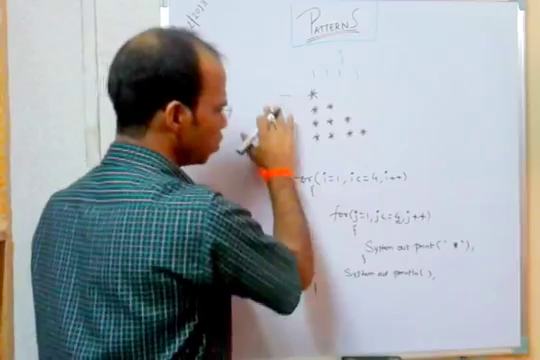 PATTERNS
*
* *
* * *
* * * *
for(i=1, i<=4, i++)
{
for(j=1, j<=4, j++)
{
System out print(" * "),
}
System out println( ),